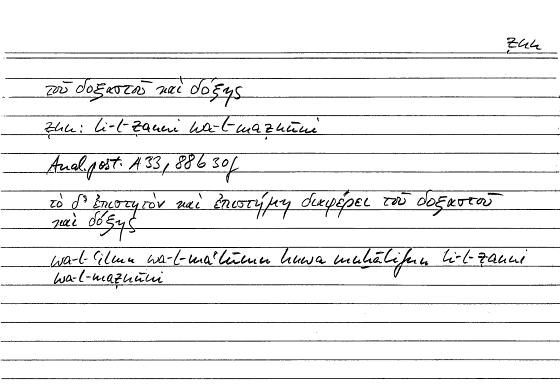 ẓnn
τοῦ δοξαστοῦ καὶ δόξης
ẓnn: li-l-ẓanni wa-l-maẓnūni
Anal. post. A 33, 88 b 30f
τὸ δ' ἐπιστητὸν καὶ ἐπιστήμη διαφέρει τοῦ δοξαστοῦ
καὶ δόξης
wa-l-ʿilmu wa-l-maʿlūmu huwa muḫālifun li-l-ẓanni
wa-l-maẓnūni